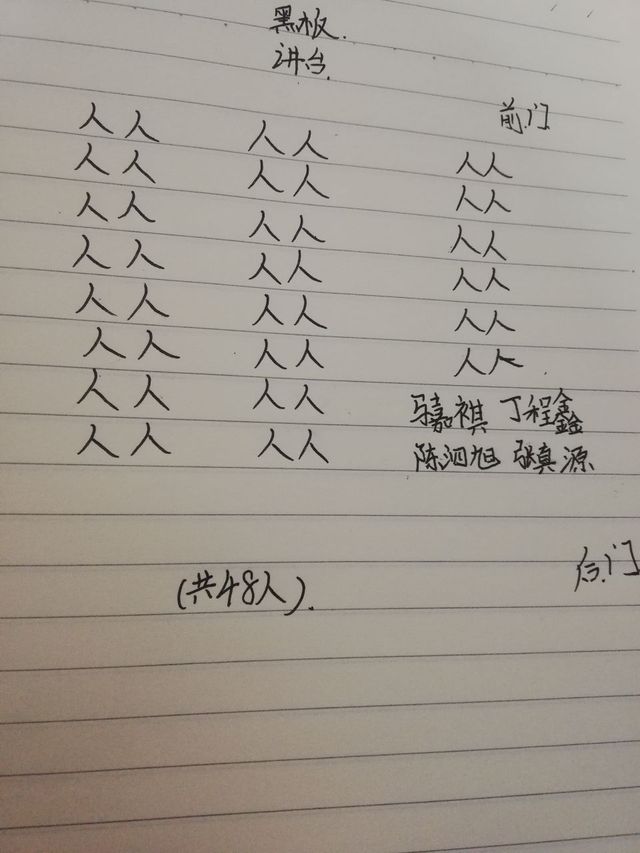 黑板.
讲台.
前门
人人 人人 人人
人人 人人 人人
人人 人人 人人
人人 人人 人人
人人 人人 人人
人人 人人 人人
人人 人人 马嘉祺 丁程鑫
人人 人人 陈泗旭 张真源
后门
(共48人).